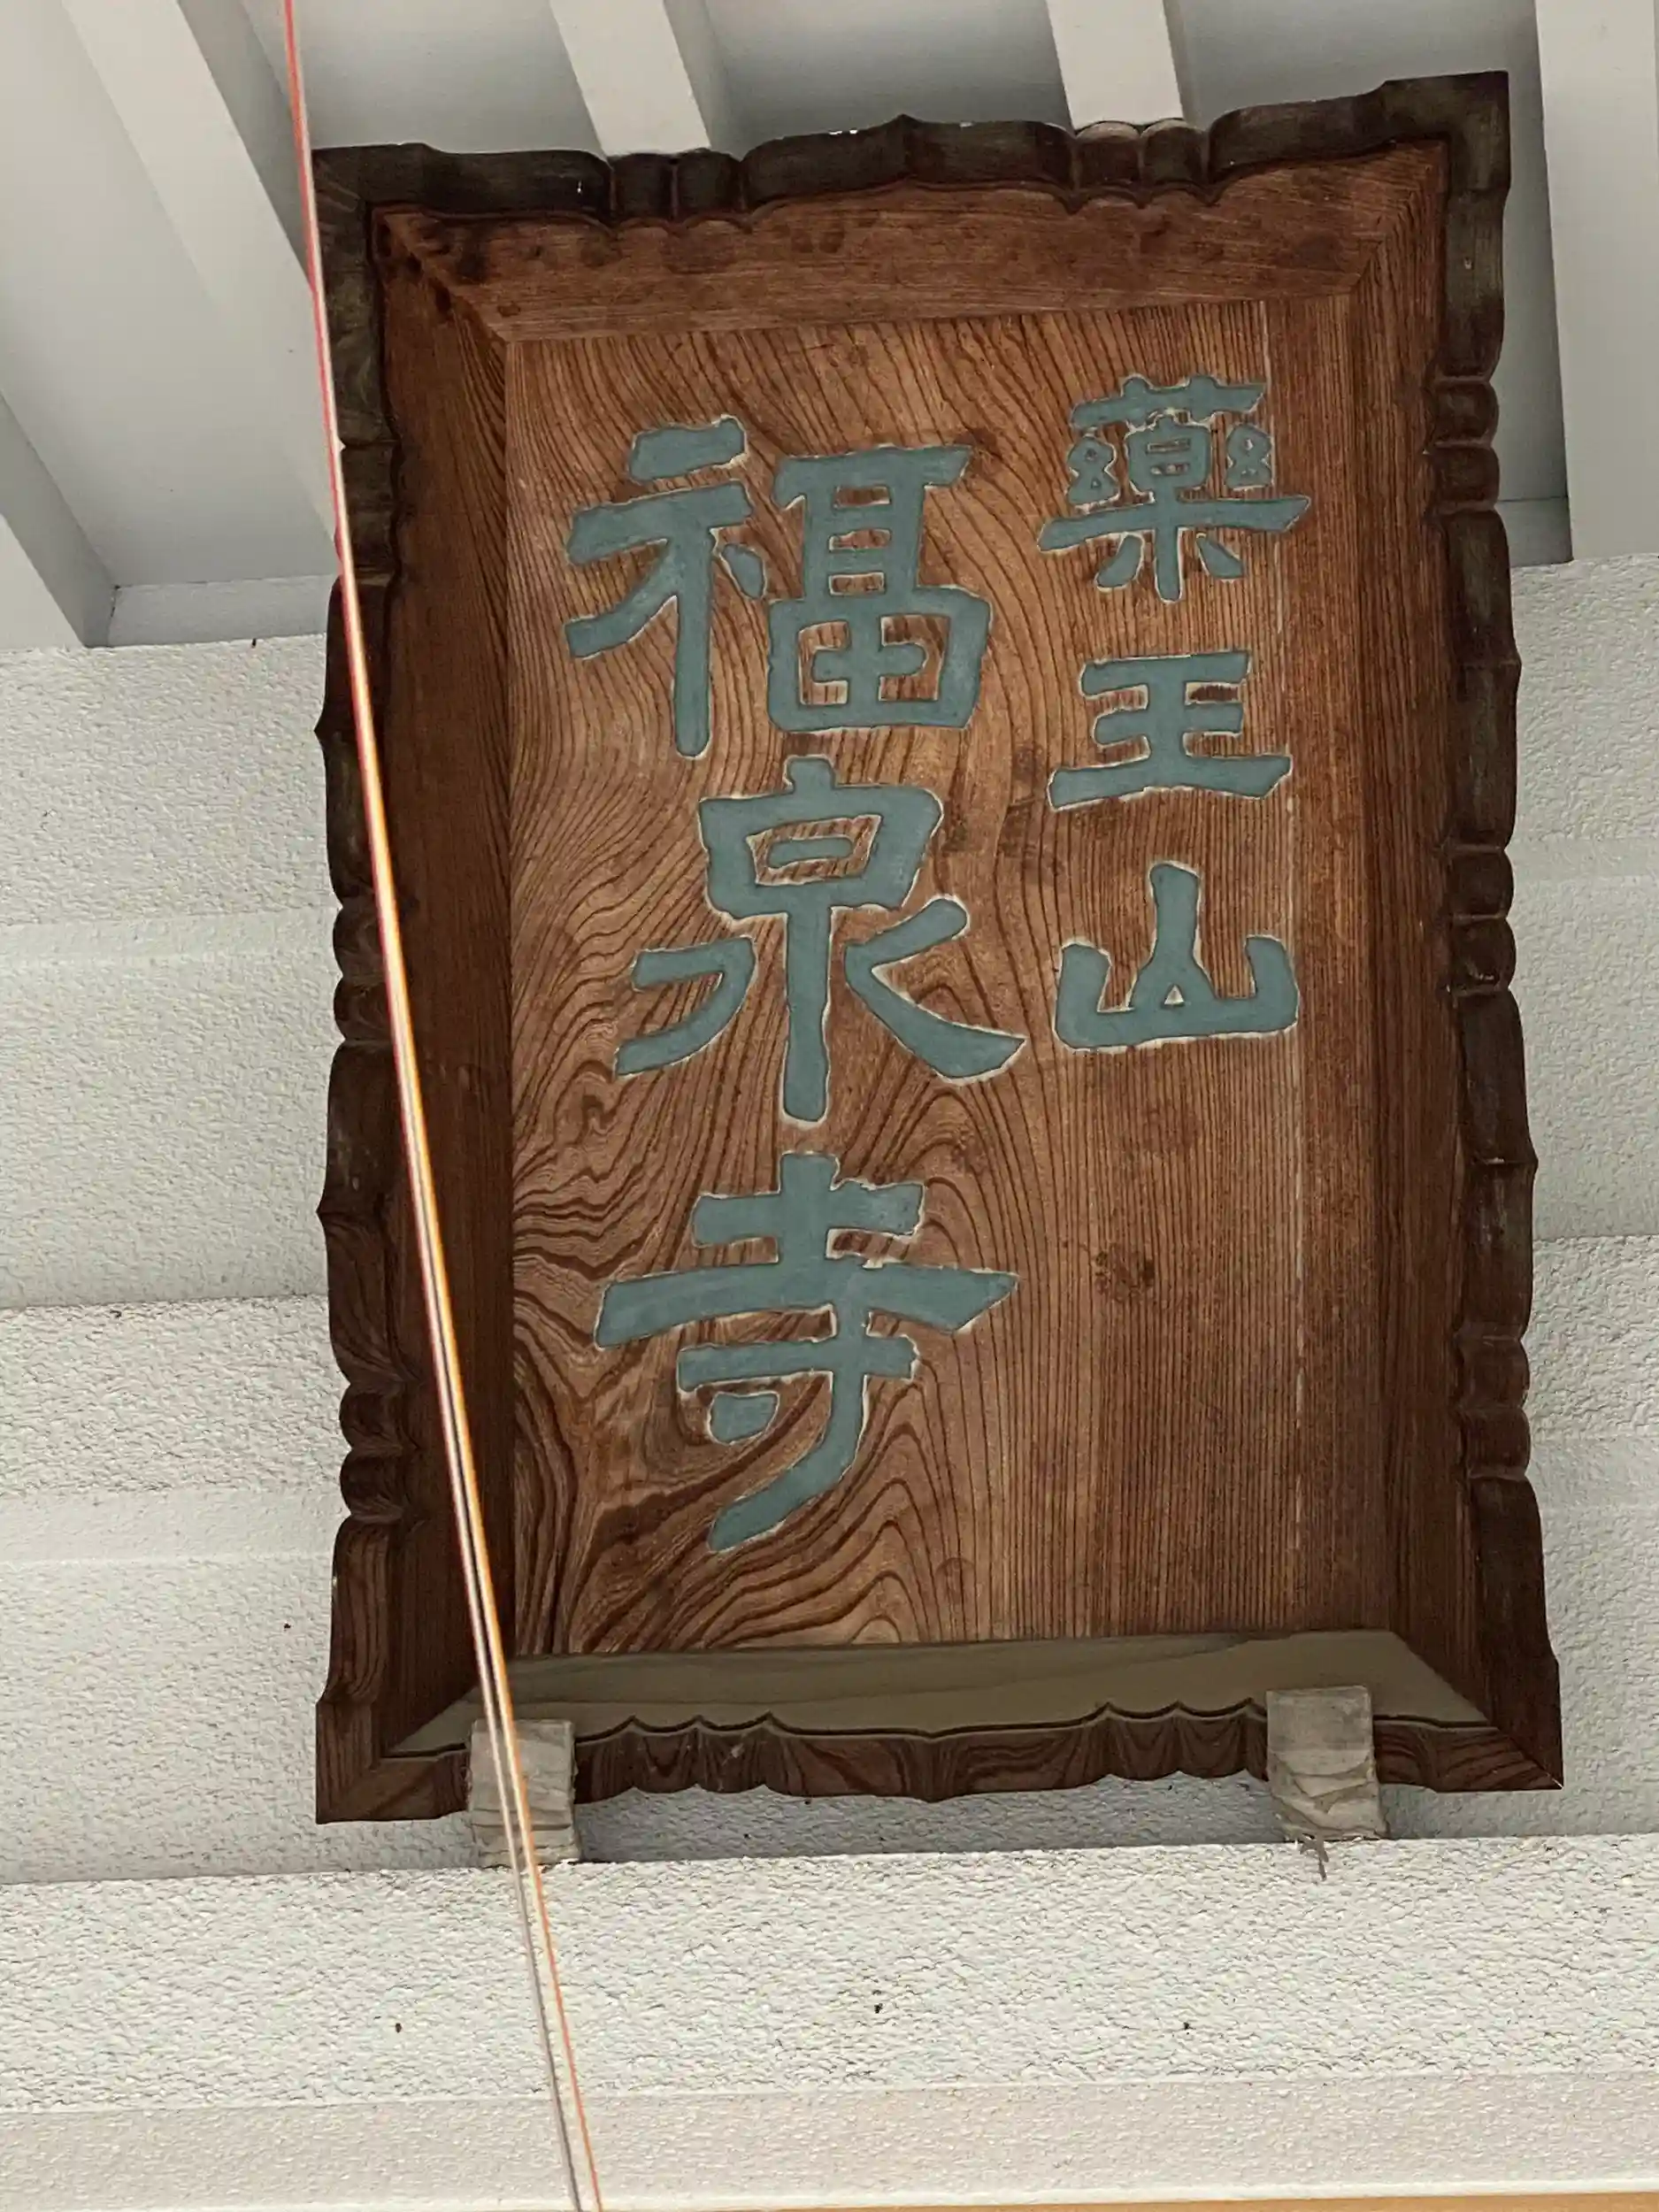 藥王山
福泉寺